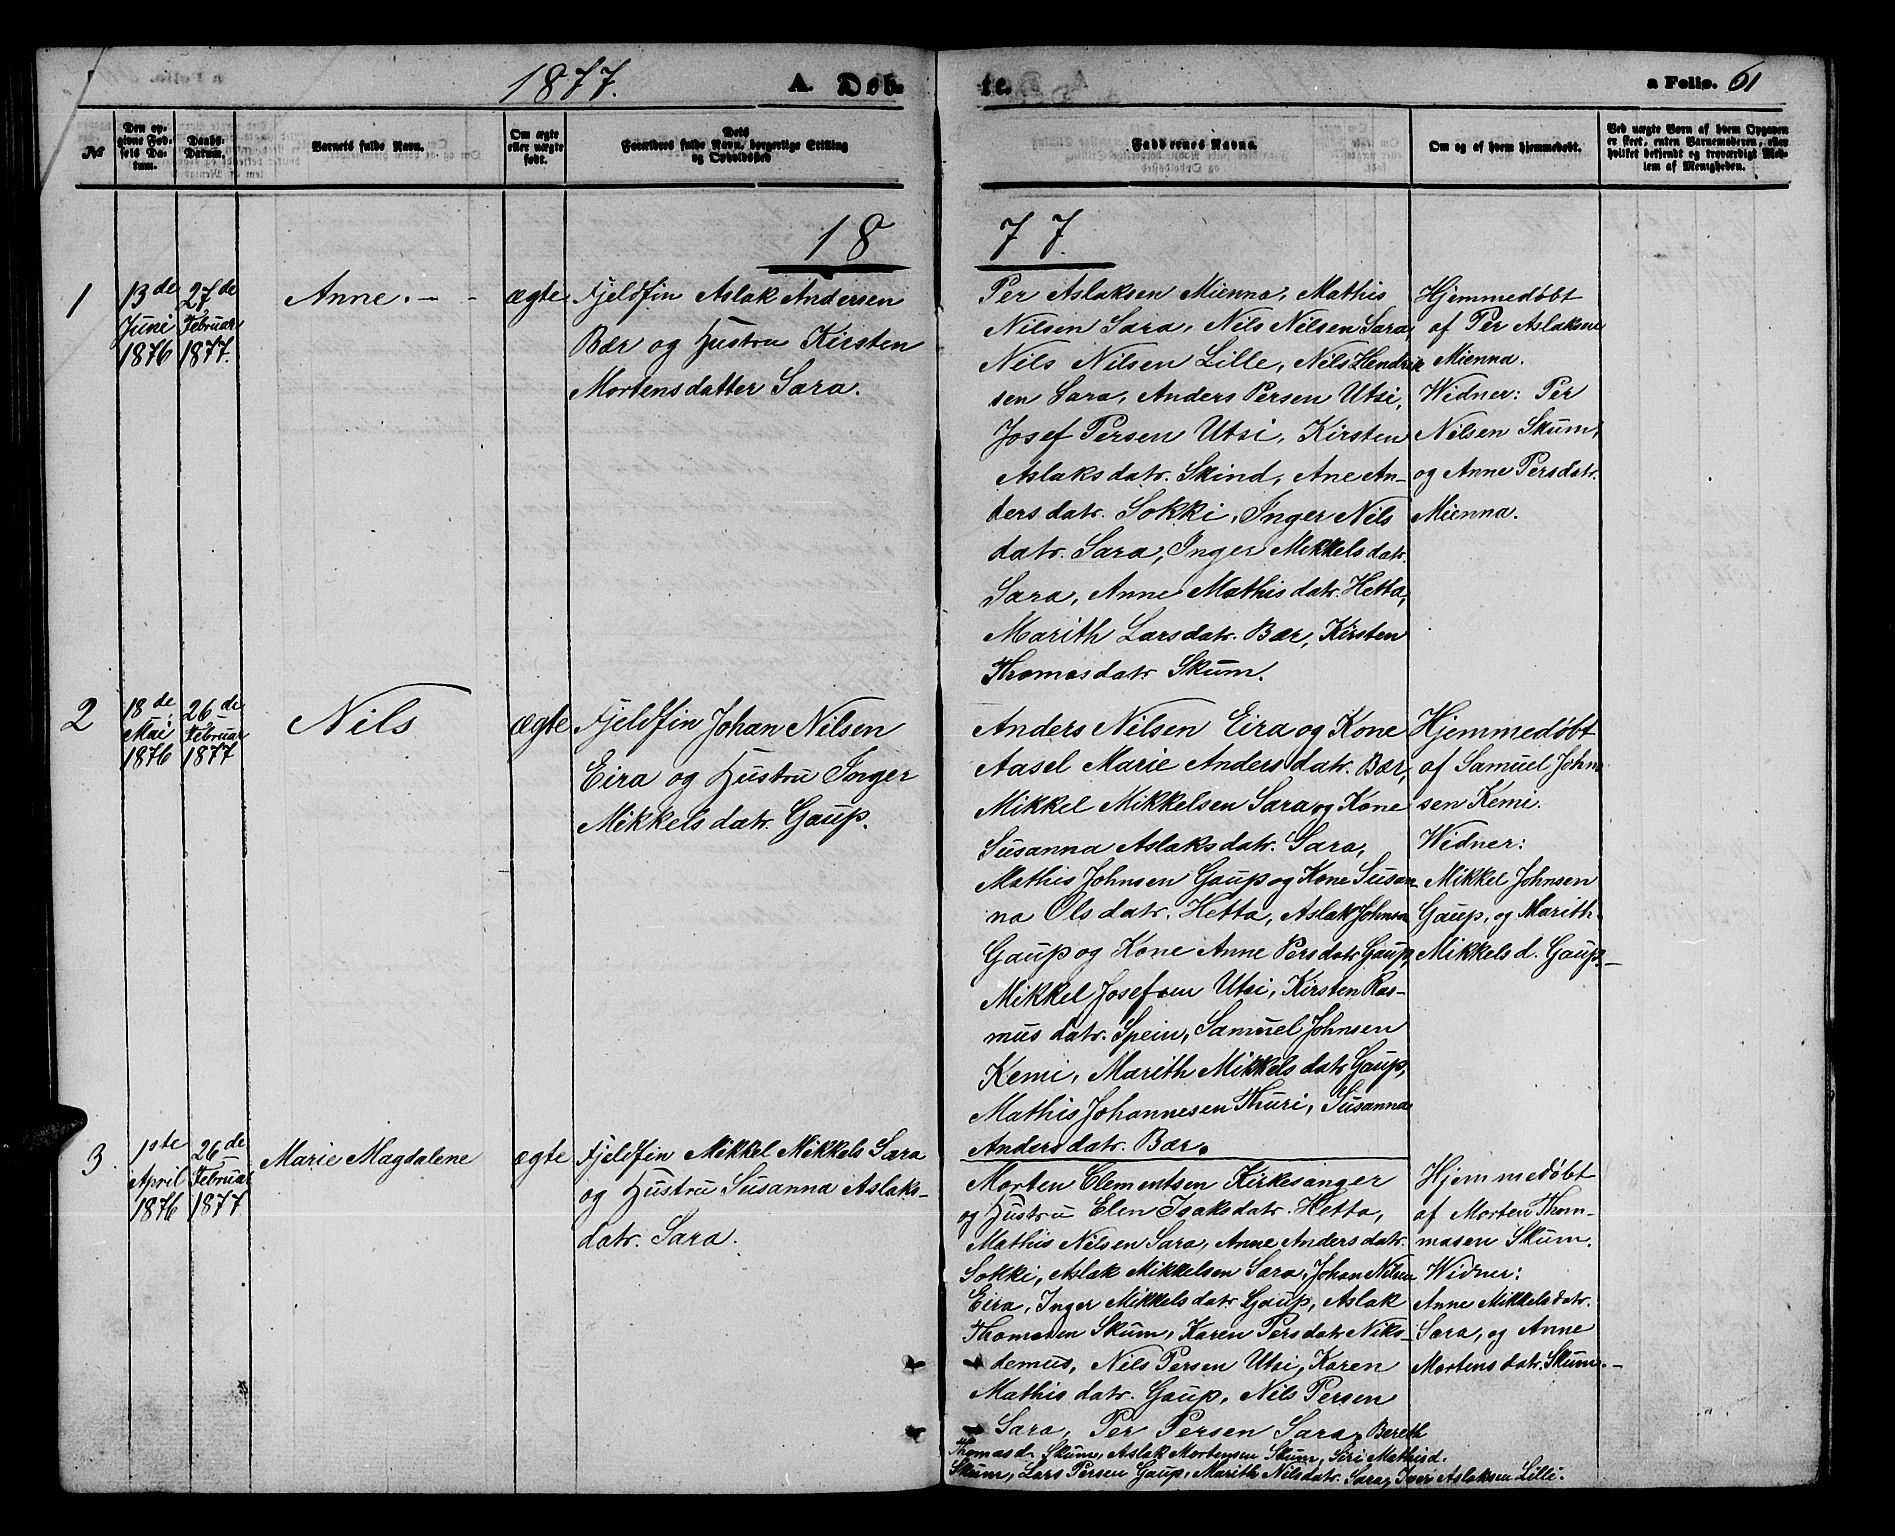 1877. A. Døb-
№
Den op-
givne Fød-
sels Da-
tum.
Daabs-
Datum.
Barnets fulde Navn.
Om ægte
eller uægte
født.
Dets
Forældres fulde Navn, borgerlige Stilling
og Opholdssted
18
1
13de
Juni
1876
27de
Februar
1877.
Anne. - -
ægte
Fjeldfin Aslak Andersen
Bær og Hustru Kirsten
Mortensdatter Sara.
2
18de
Mai
1876
26de
Februar
1877
Nils
ægte
Fjeldfin Johan Nilsen
Eira og Hustru Inger
Mikkelsdatr. Gaup.
3.
1ste
April
1876
26de
Februar
1877
Marie Magdalene
ægte
Fjeldfin Mikkel Mikkels Sara
og Hustru Susanna Aslaks-
datr. Sara.
te. a Folio. 61
Faddernes Navne.
Om og af hvem hjemmedøbt.
Ved uægte Børn af hvem Opgaven
er skeet, enten Barnemoderen, eller
hvilket bekjendt og troværdigt Med-
lem af Menigheden.
77.
Per Aslaksen Mienna, Mathis
Nilsen Sara, Nils Nilsen Sara,
Nils Nilsen Lille, Nils Hendrik
sen Sara, Anders Persen Utsi,
Josef Persen Utsi, Kirsten
Aslaksdatr. Skind, Ane An-
dersdatr. Sokki, Inger Nils
datr. Sara, Inger Mikkelsdatr.
Sara, Anne Mathisdatr. Hetta,
Marith Larsdatr. Bær, Kirsten
Thomasdatr. Skum.
Hjemmedøbt
af Per Aslaksen
Mienna.
Widner: Per
Nilsen Skum,
og Anne Persdatr.
Mienna.
Anders Nilsen Eira og Kone
Aasel Marie Andersdatr. Bær,
Mikkel Mikkelsen Sara og Kone
Susanna Aslaksdatr. Sara,
Mathis Johnsen Gaup og Kone Susan
na Olsdatr. Hetta, Aslak Johnsen
Gaup og Kone Anne Persdatr Gaup,
Mikkel Josefsen Utsi, Kirsten Ras-
musdatr. Spein, Samuel Johnsen
Kemi, Marith Mikkelsdatr Gaup,
Mathis Johannesen Thuri, Susanna
Andersdatr. Bær.
Hjemmedøbt
af Samuel John
sen Kemi.
Widner:
Mikkel Johnsen
Gaup, og Marith
Mikkelsd. Gaup.-
Morten Clementsen Kirkesanger
og Hustru Elen Isaksdatr. Hetta,
Mathis Nilsen Sara, Anne Andersdatr.
Sokki, Aslak Mikkelsen Sara, Johan Nilsen
Eira, Inger Mikkelsdatr Gaup, Aslak
Thomasen Skum, Karen Persdatr Niko-
demus, Nils Persen Utsi, Karen
Mathisdatr. Gaup, Nils Persen
Sara, Per Persen Sara, Bereth
Thomasd. Skum, Aslak Mortensen Skum, Siri Mathisd.
Skum, Lars Persen Gaup, Marith Nilsdatr. Sara, Iver Aslaksen Lille.
Hjemmedøbt
af Morten Thom-
masen Skum.
Widner:
Anne Mikkelsdatr.
Sara, og Anne
Mortensdatr. Skum.-